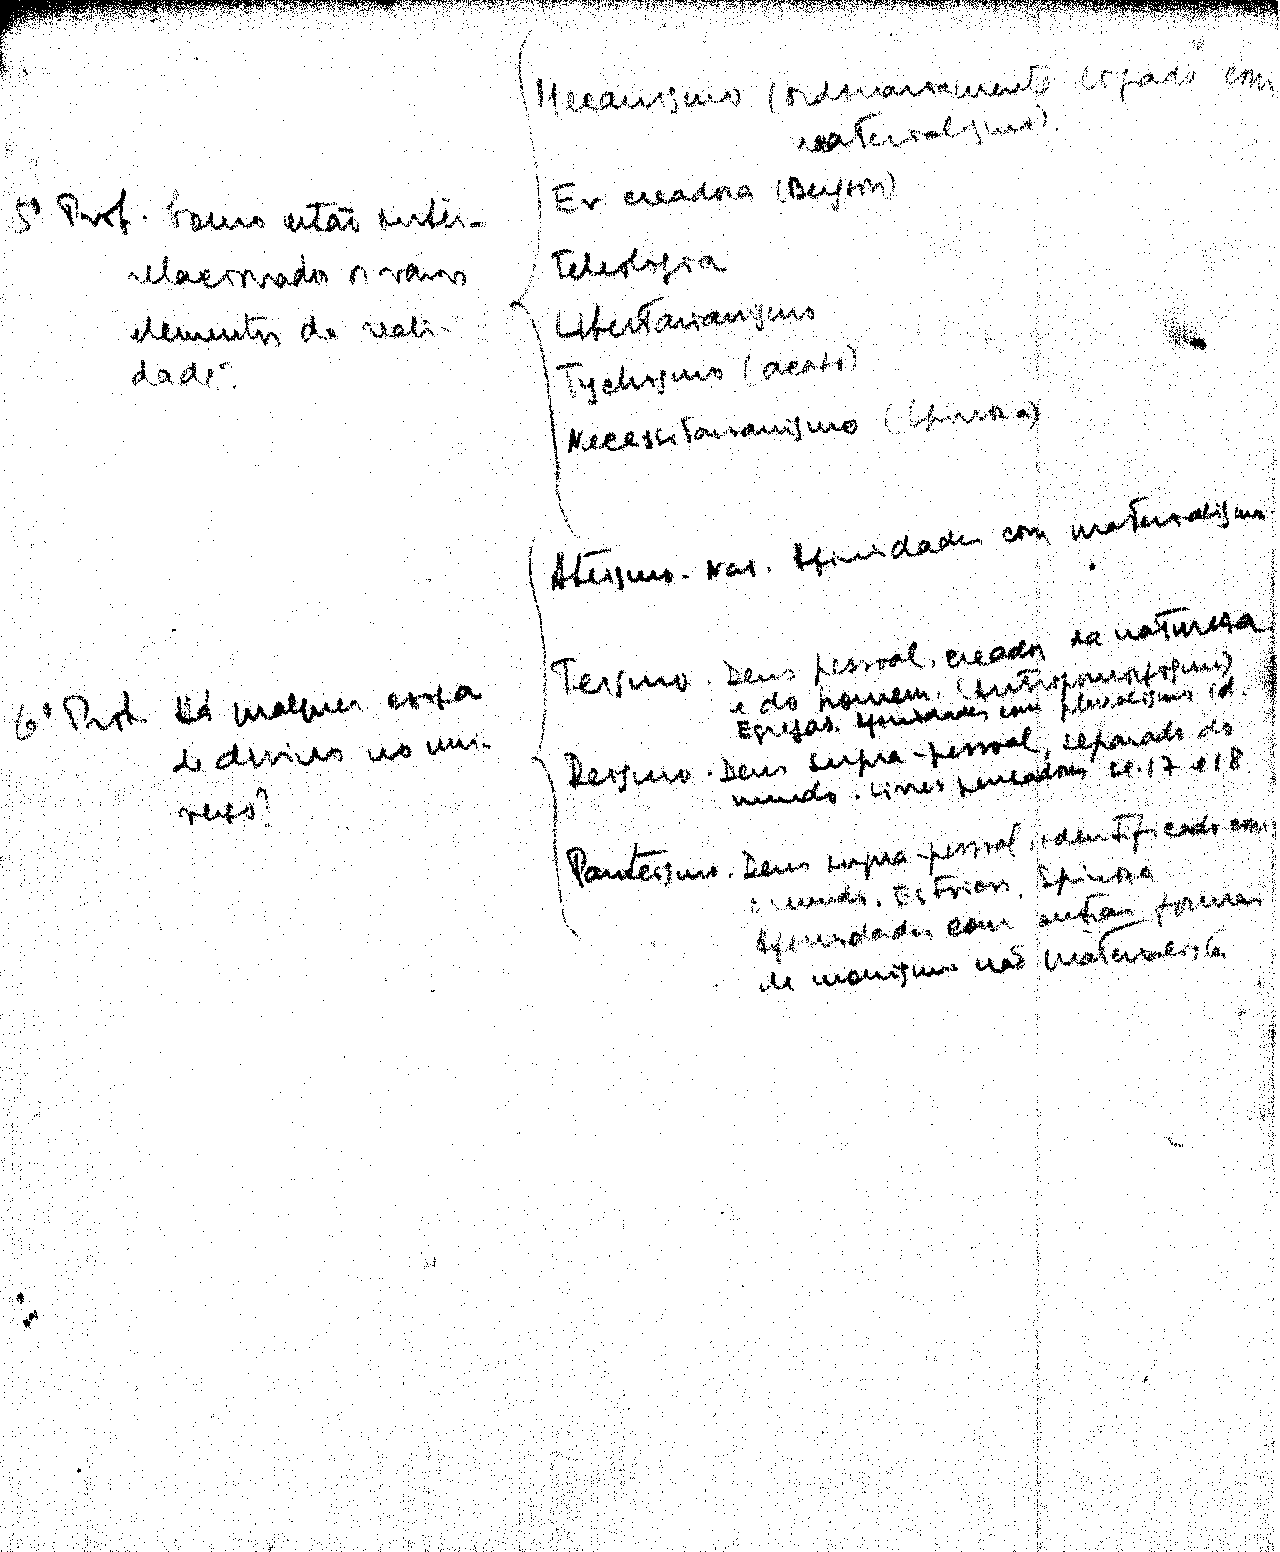 5º Prob. Como estão inter-
relacionados os varios
elementos da reali-
dade.
Mecanismo (ordinariamente ligado com
materialismo).
Ev creadora (Bergson)
Teleologia
Libertarianismo
Tychismo (acaso)
Necessitarianismo (Spinoza)
6º Prob. Há qualquer coisa
de divino no uni-
verso?
Ateismo. Não. Afinidades com materialismo
Teismo. Deus pessoal, creador da natureza
e do homem. (Antropomorfismo)
Egrejas. Afinidades com pluralismo id.
Deismo. Deus supra-pessoal, separado do
mundo. Livres pensadores sec. 17 e 18
Panteismo. Deus supra-pessoal identificado com
o mundo. Estoicos. Spinoza
Afinidades com outras formas
de monismo não materialista